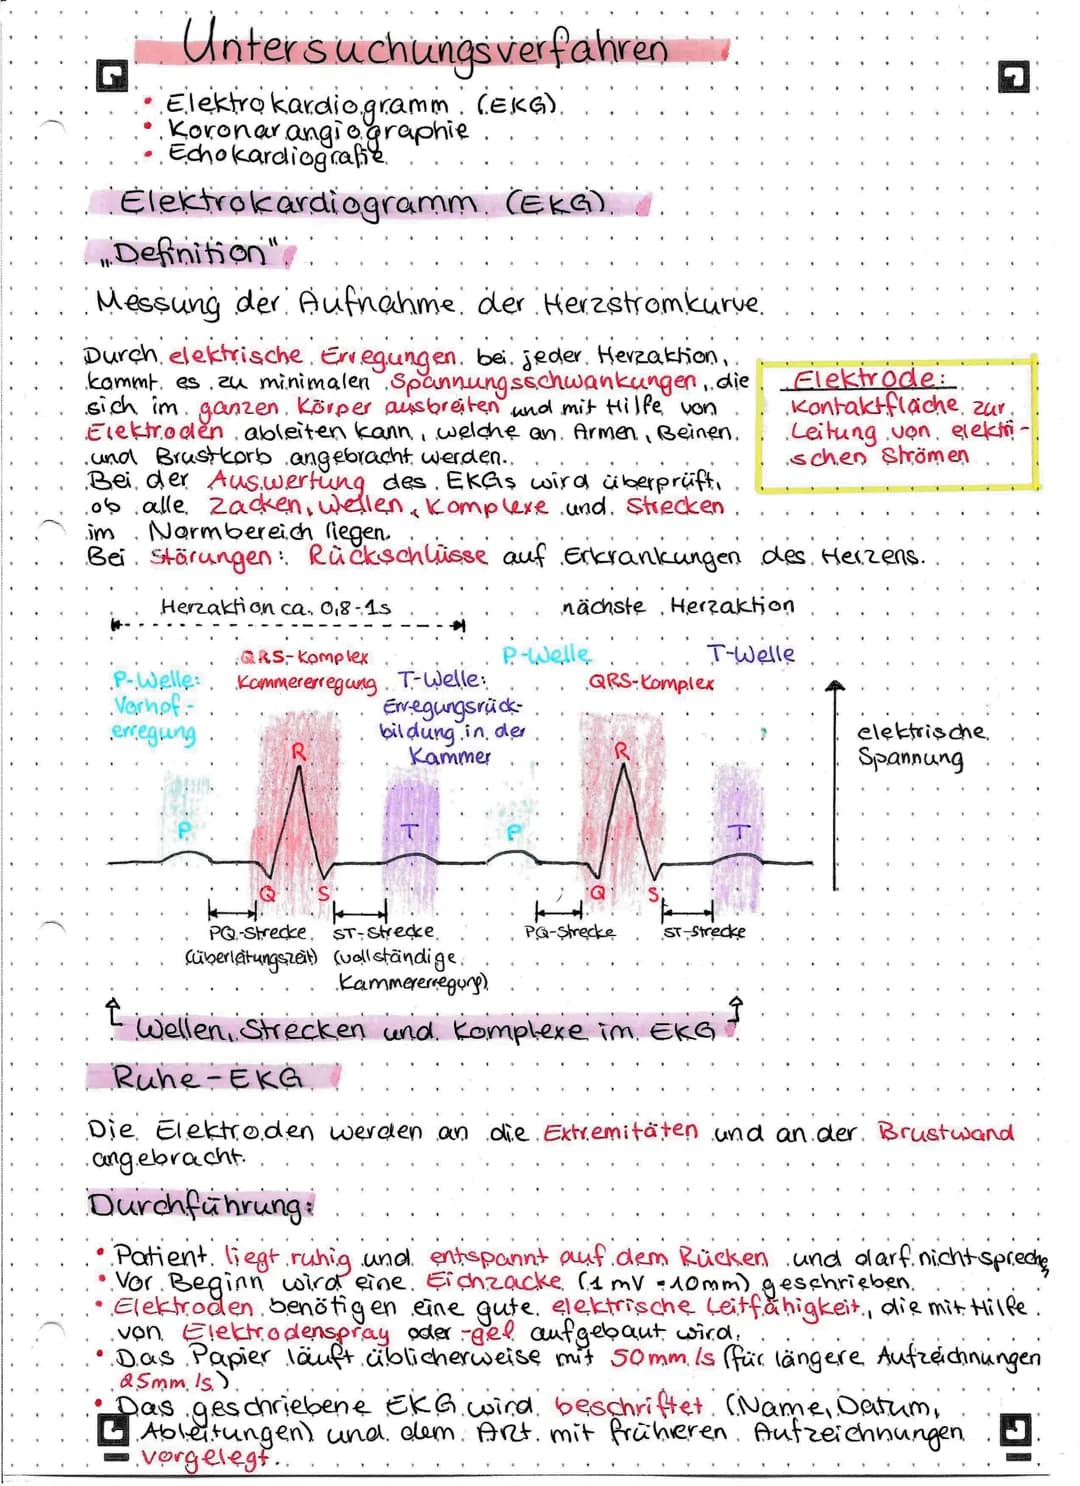 Untersuchungsverfahren
• Elektrokardiogramm (EKG)
• Koronarangiographie
• Echokardiografie
Elektrokardiogramm (EKG)
„Definition"
Messung der Aufnahme der Herzstromkurve.
Durch elektrische Erregungen bei jeder Herzaktion,
kommt es zu minimalen Spannungsschwankungen, die
sich im ganzen Körper ausbreiten und mit Hilfe von
Elektroden ableiten kann, welche an Armen, Beinen,
und Brustkorb angebracht werden.
Bei der Auswertung des EKGs wird überprüft,
ob alle Zacken, Wellen, Komplexe und Strecken
im Normbereich liegen.
Bei Störungen: Rückschlüsse auf Erkrankungen des Herzens.
Elektrode:
Kontaktfläche zur
Leitung von elektri-
schen Strömen
Herzaktion ca. 0,8-1s
nächste Herzaktion
P-Welle:
Vorhof-
erregung
QRS-Komplex
Kammererregung
T-Welle:
Erregungsrück-
bildung in der
Kammer
P-Welle
QRS-Komplex
T-Welle
elektrische
Spannung
R
R
P
T
P
T
Q
S
Q
S
PQ-Strecke
(Überleitungszeit)
ST-Strecke
(vollständige
Kammererregung)
PQ-Strecke
ST-Strecke
Wellen, Strecken und Komplexe im EKG
Ruhe-EKG
Die Elektroden werden an die Extremitäten und an der Brustwand
angebracht.
Durchführung:
• Patient liegt ruhig und entspannt auf dem Rücken und darf nicht sprechen
• Vor Beginn wird eine Eichzacke (1 mV = 10mm) geschrieben.
• Elektroden benötigen eine gute elektrische Leitfähigkeit, die mit Hilfe
von Elektrodenspray oder -gel aufgebaut wird.
• Das Papier läuft üblicherweise mit 50mm/s (für längere Aufzeichnungen
25mm/s)
• Das geschriebene EKG wird beschriftet (Name, Datum,
Ableitungen) und dem Arzt mit früheren Aufzeichnungen
vorgelegt.